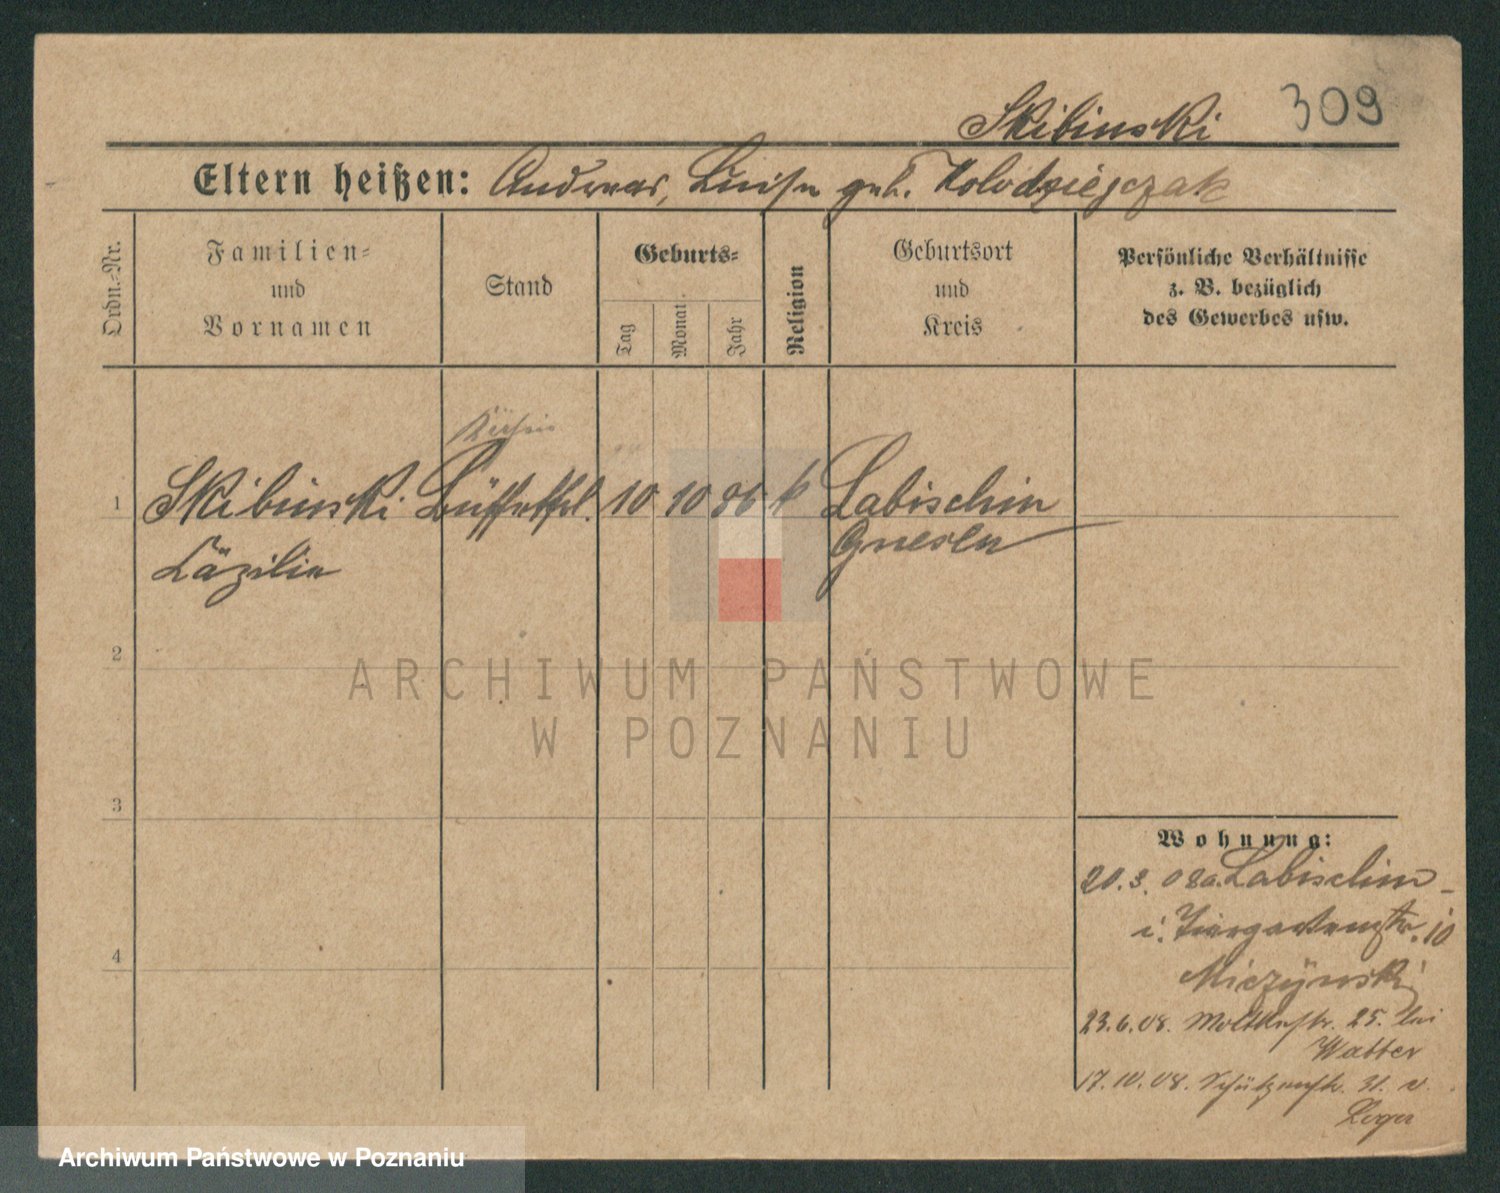 Skibinski 309
Eltern heißen: Andreas, Luise geb. Kolodziejczak
Ordn.-Nr.
Familien-
und
Vornamen
Stand
Geburts-
Tag
Monat
Jahr
Religion
Geburtsort
und
Kreis
Persönliche Verhältnisse
z. B. bezüglich
des Gewerbes usw.
1 Skibinski Büffetfrl. 10 10 86 k Labischin
Gnesen
Cäzilie
2
3
4
ARCHIWUM PAŃSTWOWE
W POZNANIU
Wohnung:
20.3.08 a. Labischin
i. Tiergartenstr. 10
Miczynski
23.6.08. Moltkestr. 25. bei
Watter
17.10.08. Schützenstr. 31.
Archiwum Państwowe w Poznaniu